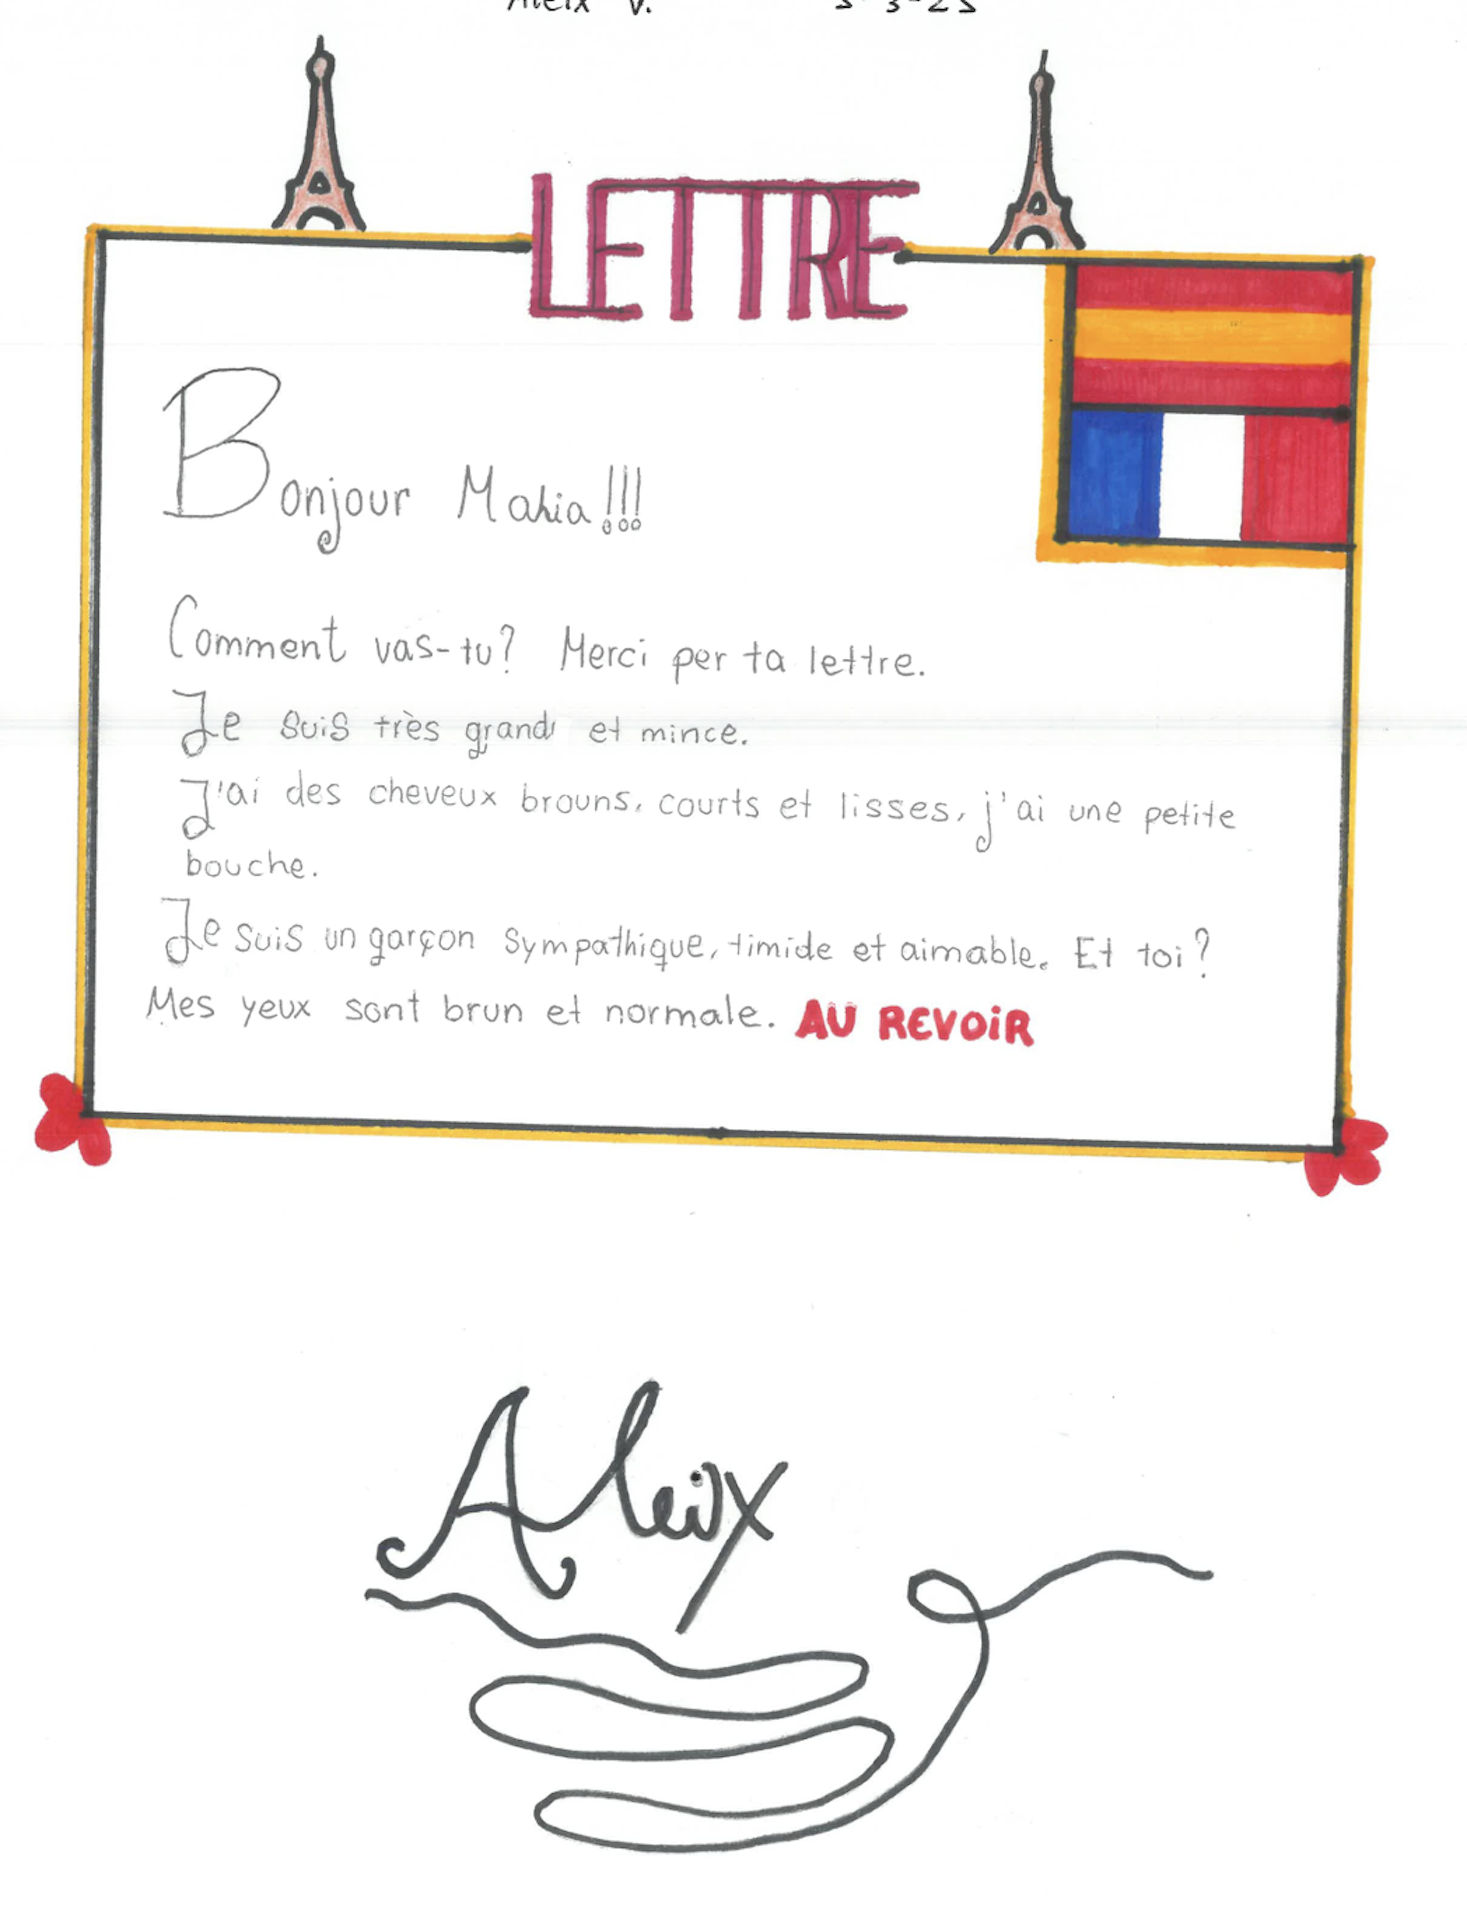 Aleix V. 5-3-25
LETTRE
Bonjour Mahia!!!
Comment vas-tu? Merci per ta lettre.
Je suis très grand et mince.
J'ai des cheveux brouns, courts et lisses, j'ai une petite
bouche.
Je suis un garçon sympathique, timide et aimable. Et toi?
Mes yeux sont brun et normale. AU REVOIR
Aleix